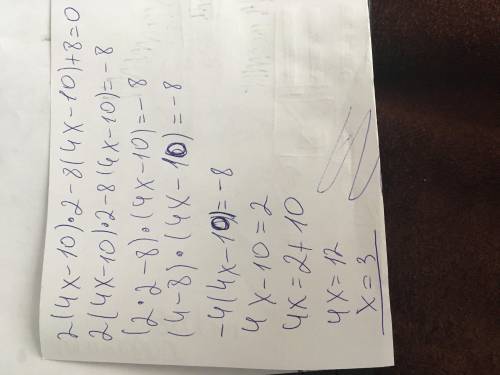 2(4x-10)•2-8(4x-10)+8=0
2(4x-10)•2-8(4x-10)=-8
(2•2-8)•(4x-10)=-8
(4-8)•(4x-10)=-8
-4(4x-10)=-8
4x-10=2
4x=2+10
4x=12
x=3